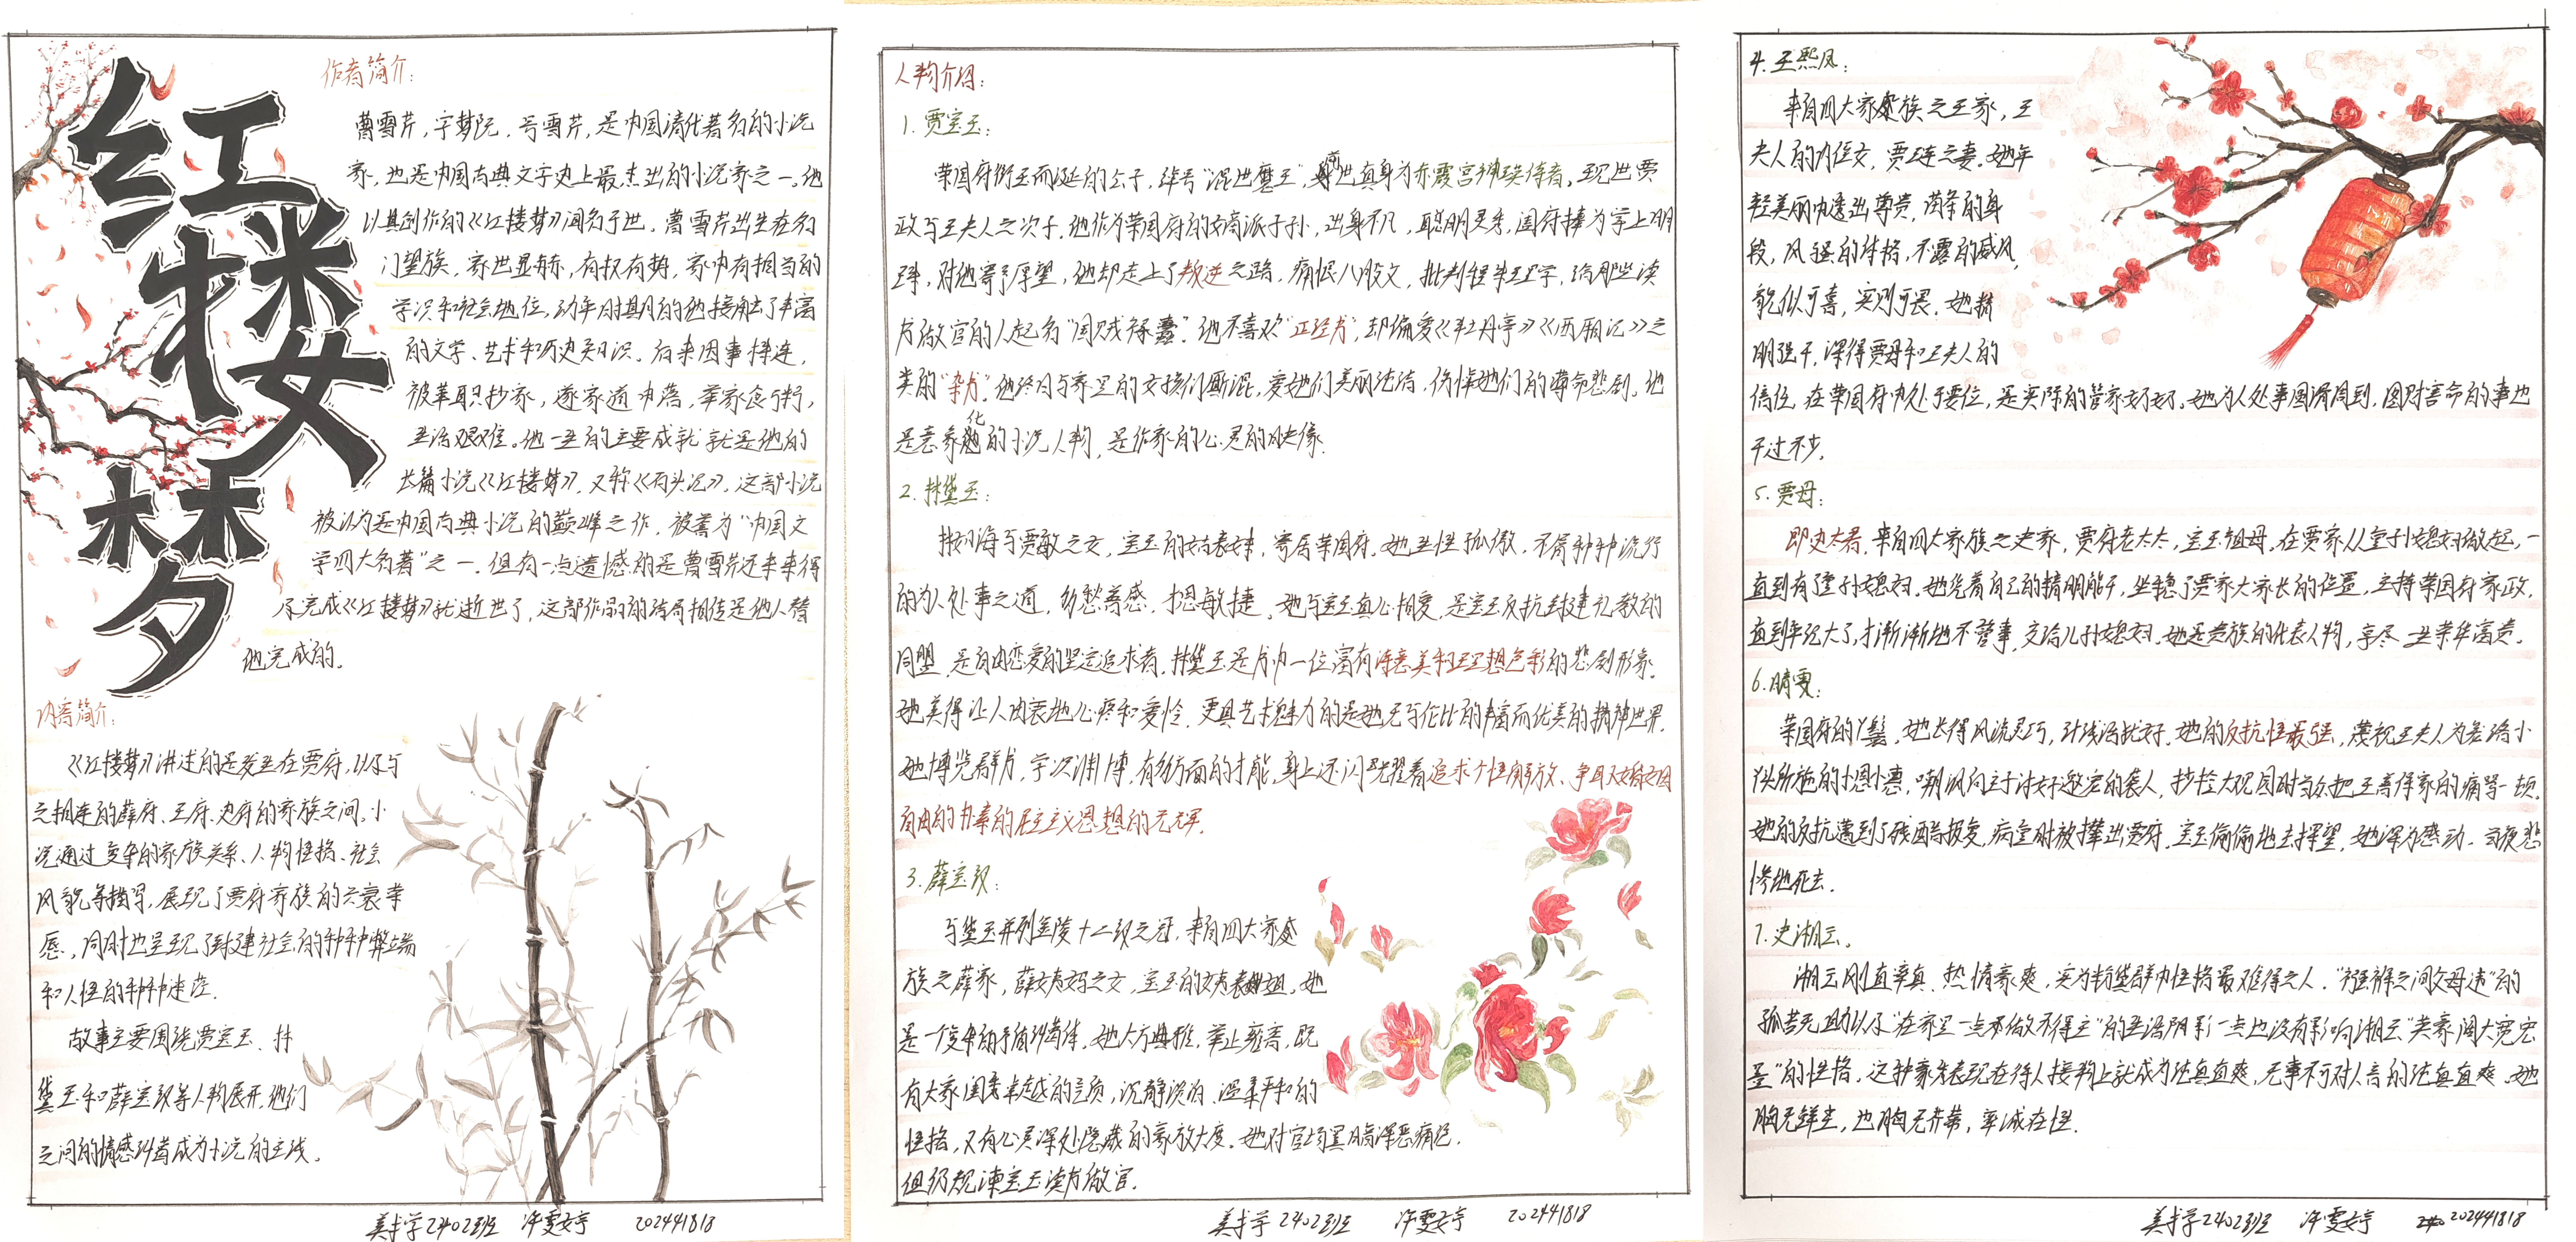 红楼梦
作者简介：
曹雪芹，字梦阮，号雪芹，是中国清代著名的小说
家，也是中国古典文学史上最杰出的小说家之一。他
以其创作的《红楼梦》闻名于世。曹雪芹出生在名
门望族，家世显赫，有权有势，家中有相当的
学识和社会地位，幼年时期的他接触了丰富
的文学、艺术和历史知识。后来因事株连，
被革职抄家，遂家道中落，举家食粥，
生活艰难。他一生的主要成就就是他的
长篇小说《红楼梦》，又称《石头记》，这部小说
被认为是中国古典小说的巅峰之作，被誉为“中国文
学四大名著”之一。但有一点遗憾的是曹雪芹还未来得
及完成《红楼梦》就逝世了，这部作品的结局相传是他人替
他完成的。
内容简介：
《红楼梦》讲述的是发生在贾府，以及与
之相连的薛府、王府、史府的家族之间。小
说通过复杂的家族关系、人物性格、社会
风貌等描写，展现了贾府家族的兴衰荣
辱，同时也呈现了封建社会的种种弊端
和人性的种种迷茫。
故事主要围绕贾宝玉、林
黛玉和薛宝钗等人物展开，他们
之间的情感纠葛成为小说的主线。
美术学2402班 许雯婷 202441818
人物介绍：
1. 贾宝玉：
荣国府衔玉而诞的公子，绰号“混世魔王”，前世真身为赤霞宫神瑛侍者，现世贾
政与王夫人之次子。他作为荣国府的嫡派子孙，出身不凡，聪明灵秀，阖府捧为掌上明
珠，对他寄予厚望，他却走上了叛逆之路，痛恨八股文，批判程朱理学，给那些读
书做官的人起名“国贼禄蠹”。他不喜欢“正经书”，却偏爱《牡丹亭》《西厢记》之
类的“杂书”。他终日与家里的女孩们厮混，爱她们美丽纯洁，伤悼她们的薄命悲剧。他
是意象化的小说人物，是作家的心灵的映像。
2. 林黛玉：
林如海与贾敏之女，宝玉的姑表妹，寄居荣国府。她生性孤傲，不屑种种流行
的为人处事之道，多愁善感，才思敏捷。她与宝玉真心相爱，是宝玉反抗封建礼教的
同盟，是自由恋爱的坚定追求者。林黛玉是书中一位富有诗意美和理想色彩的悲剧形象。
她美得让人由衷地心疼和爱怜，更具艺术魅力的是她无与伦比的丰富而优美的精神世界。
她博览群书，学识渊博，有多方面的才能，身上还闪耀着追求个性解放、争取婚姻
自由的朴素的民主主义思想的光辉。
3. 薛宝钗：
与黛玉并列金陵十二钗之冠，来自四大家
族之薛家，薛姨妈之女，宝玉的姨表姐，她
是一个复杂的矛盾纠葛体。她大方典雅，举止雍容，既
有大家闺秀卓越的气质，沉静淡泊、温柔平和的
性格，又有心灵深处隐藏的豪放大度。她对官场黑暗深恶痛绝，
但仍规谏宝玉读书做官。
美术学2402班 许雯婷 202441818
4. 王熙凤：
来自四大家族之王家，王
夫人的内侄女，贾琏之妻。她年
轻美丽中透出尊贵，苗条的身
段，风骚的体格，不露的威风，
貌似可喜，实则可畏。她精
明强干，深得贾母和王夫人的
信任，在荣国府中处于要位，是实际的管家奶奶。她为人处事圆滑周到，图财害命的事也
干过不少。
5. 贾母：
即史太君，来自四大家族之史家，贾府老太太，宝玉祖母。在贾家从重孙媳妇做起，一
直到有重孙媳妇。她凭着自己的精明能干，坐稳了贾家大家长的位置，主持荣国府家政，
直到年纪大了，才渐渐地不管事，交给儿孙媳妇。她是贵族的代表人物，享尽一生荣华富贵。
6. 晴雯：
荣国府的丫鬟，她长得风流灵巧，针线活就好。她的反抗性最强，蔑视王夫人为笼络小
丫头所施的小恩小惠，嘲讽向主子讨好邀宠的袭人，抄捡大观园时当众把王善保家的痛骂一顿。
她的反抗遭到了残酷报复，病重时被撵出贾府，宝玉偷偷地去探望，她深为感动，当夜悲
惨地死去。
7. 史湘云。
湘云刚直率真、热情豪爽，实为钗黛群中性格最难得之人。“襁褓之间父母违”的
孤苦无助以及“在家里一点都做不得主”的生活阴影一点也没有影响湘云“英豪阔大宽宏
量”的性格。这种豪爽表现在待人接物上就成为纯真直爽，无事不可对人言的纯真直爽。她
胸无纤尘，也胸无芥蒂，率诚任性。
美术学2402班 许雯婷 202441818